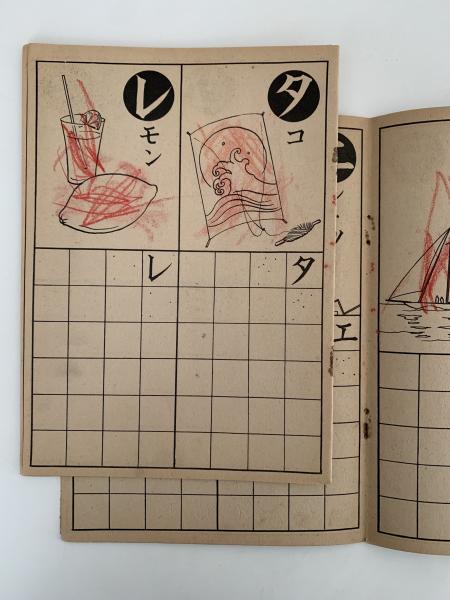 タコ
レモン
タ
レ
エ